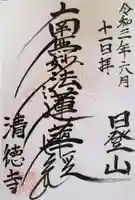 令和三年六月
十一日拝
日登山
南無妙法蓮華経
清徳寺